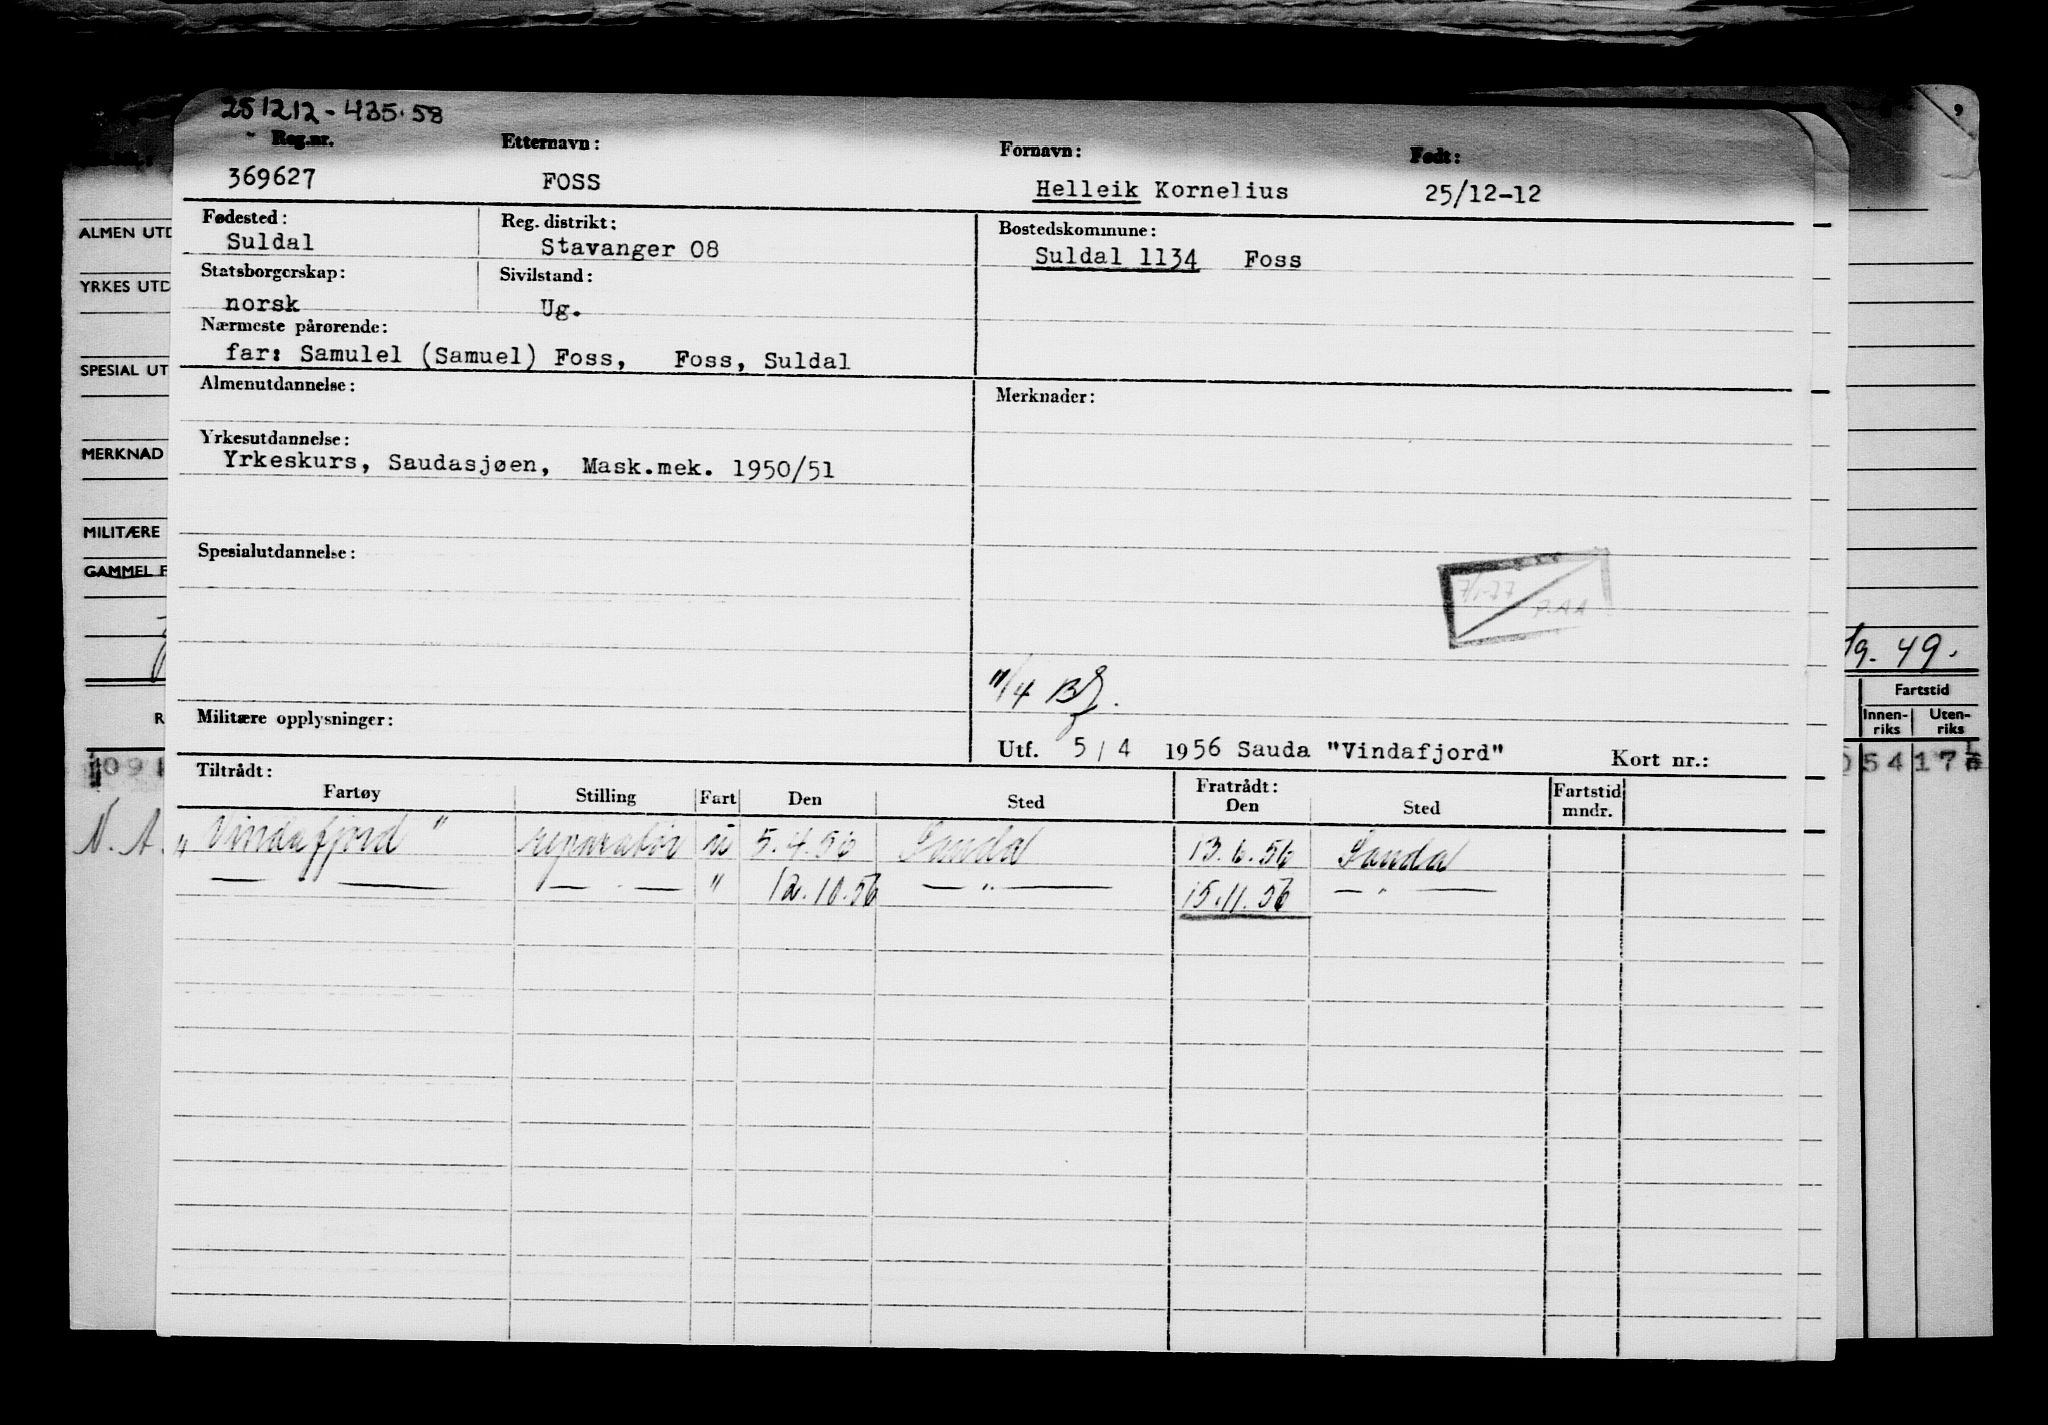 251212-435.58
Reg.nr. Etternavn: Fornavn: Født:
369627 FOSS Helleik Kornelius 25/12-12
Fødested: Reg. distrikt: Bostedskommune:
Suldal Stavanger 08 Suldal 1134 Foss
Statsborgerskap: Sivilstand:
norsk Ug.
Nærmeste pårørende:
far: Samulel (Samuel) Foss, Foss, Suldal
Almenutdannelse: Merknader:
Yrkesutdannelse:
Yrkeskurs, Saudasjøen, Mask.mek. 1950/51
Spesialutdannelse:
7/1-77
P.AA
11/4
Militære opplysninger:
Utf. 5/4 1956 Sauda "Vindafjord" Kort nr.:
Tiltrådt: Fratrådt:
Fartøy Stilling Fart Den Sted Den Sted Fartstid mndr.
"Vindafjord" reparatør 5.4.56 Sauda 13.6.56 Sauda
— " — — " — " 12.10.56 — " — 15.11.56 — " —
ALMEN UTD
YRKES UTD
SPESIAL UT
MERKNAD
MILITÆRE
GAMMEL F
R
N. A.
19. 49.
Fartstid
Innen-riks Uten-riks